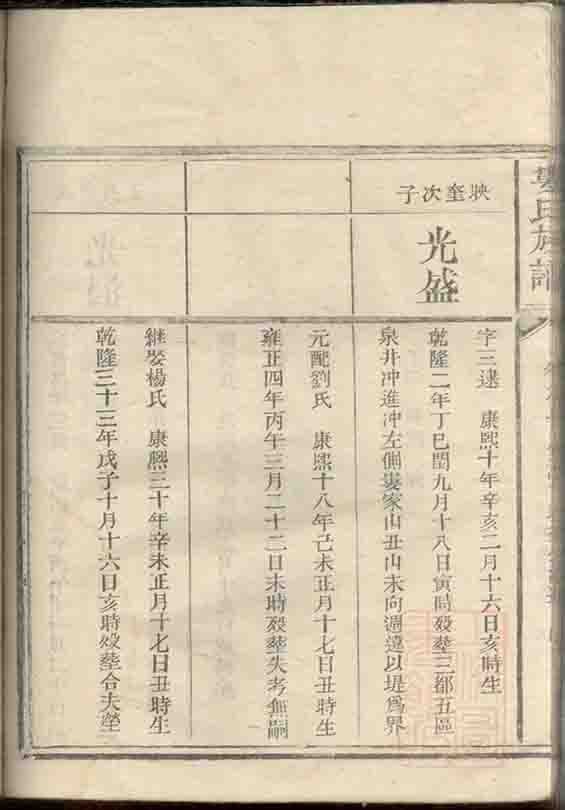 婁氏族譜
映奎次子
光盛
字三逮 康熙十年辛亥二月十六日亥時生
乾隆二年丁巳閏九月十八日寅時歿塟三都五區
泉井冲進冲左側婁家山丑山未向週遶以堤為界
元配劉氏 康熙十八年己未正月十七日丑時生
雍正四年丙午三月二十二日未時歿塟失考無嗣
繼娶楊氏 康熙三十年辛未正月十七日丑時生
乾隆三十三年戊子十月十六日亥時歿塟合夫塋